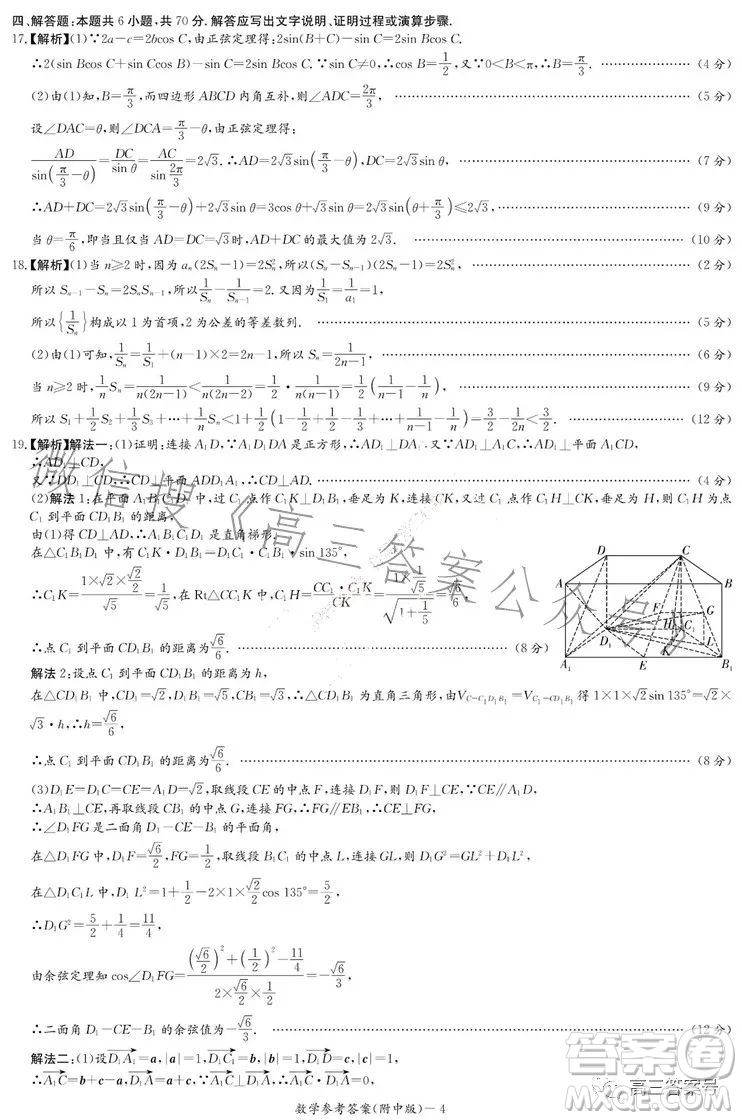 四、解答题:本题共6小题,共70分.解答应写出文字说明、证明过程或演算步骤.
17.【解析】(1)∵2a−c=2bcos C,由正弦定理得:2sin(B+C)−sin C=2sin Bcos C.
∴2(sin Bcos C+sin Ccos B)−sin C=2sin Bcos C.∵sin C≠0,∴cos B=1/2,又∵0<B<π,∴B=π/3. (4分)
(2)由(1)知,B=π/3,而四边形ABCD内角互补,则∠ADC=2π/3, (5分)
设∠DAC=θ,则∠DCA=π/3−θ,由正弦定理得:
AD/sin(π/3−θ)=DC/sin θ=AC/sin 2π/3=2√3.∴AD=2√3sin(π/3−θ),DC=2√3sin θ, (7分)
∴AD+DC=2√3sin(π/3−θ)+2√3sin θ=3cos θ+√3sin θ=2√3sin(θ+π/3)≤2√3, (9分)
当θ=π/6,即当且仅当AD=DC=√3时,AD+DC的最大值为2√3. (10分)
18.【解析】(1)当n≥2时,因为aₙ(2Sₙ−1)=2Sₙ²,所以(Sₙ−Sₙ₋₁)(2Sₙ−1)=2Sₙ², (2分)
所以Sₙ₋₁−Sₙ=2SₙSₙ₋₁,所以1/Sₙ−1/Sₙ₋₁=2.又因为1/S₁=1/a₁=1,
所以{1/Sₙ}构成以1为首项,2为公差的等差数列. (5分)
(2)由(1)可知,1/Sₙ=1/S₁+(n−1)×2=2n−1,所以Sₙ=1/(2n−1). (6分)
当n≥2时,1/n Sₙ=1/n(2n−1)<1/n(2n−2)=1/2·1/n(n−1)=1/2(1/(n−1)−1/n), (9分)
所以S₁+1/2 S₂+1/3 S₃+⋯+1/n Sₙ<1+1/2(1−1/2+1/2−1/3+⋯+1/(n−1)−1/n)=3/2−1/2n<3/2. (12分)
19.【解析】解法一:(1)证明:连接A₁D,∵A₁D₁DA是正方形,∴AD₁⊥DA₁.又∵AD₁⊥A₁C,∴AD₁⊥平面A₁CD,
∴AD₁⊥CD.
又∵DD₁⊥CD,∴CD⊥平面ADD₁A₁,∴CD⊥AD. (4分)
(2)解法1:在平面A₁B₁C₁D₁中,过C₁点作C₁K⊥D₁B₁,垂足为K,连接CK,又过C₁点作C₁H⊥CK,垂足为H,则C₁H为
C₁到平面CD₁B₁的距离,
由(1)得CD⊥AD,∴A₁B₁C₁D₁是直角梯形,
在△C₁B₁D₁中,有C₁K·D₁B₁=D₁C₁·C₁B₁·sin 135°,
∴C₁K=(1×√2×√2/2)/√5=1/√5,在Rt△CC₁K中,C₁H=CC₁·C₁K/CK=(1×1/√5)/√(1+1/5)=√6/6,
∴点C₁到平面CD₁B₁的距离为√6/6. (8分)
解法2:设点C₁到平面CD₁B₁的距离为h,
在△CD₁B₁中,CD₁=√2,D₁B₁=√5,CB₁=√3,∴△CD₁B₁为直角三角形,由V_{C−C₁D₁B₁}=V_{C₁−CD₁B₁}得1×1×√2sin 135°=√2×
√3·h,∴h=√6/6,
∴点C₁到平面CD₁B₁的距离为√6/6. (8分)
(3)D₁E=D₁C=CE=A₁D=√2,取线段CE的中点F,连接D₁F,则D₁F⊥CE,∵CE∥A₁D,
∴A₁B₁⊥CE,再取线段CB₁的中点G,连接FG,∴FG∥EB₁,∴FG⊥CE,
∴∠D₁FG是二面角D₁−CE−B₁的平面角,
在△D₁FG中,D₁F=√6/2,FG=1/2,取线段B₁C₁的中点L,连接GL,则D₁G²=GL²+D₁L²,
在△D₁C₁L中,D₁L²=1+1/2−2×1×√2/2 cos 135°=5/2,
∴D₁G²=5/2+1/4=11/4,
由余弦定理知cos∠D₁FG=((√6/2)²+(1/2)²−11/4)/(2×√6/2×1/2)=−√6/3,
∴二面角D₁−CE−B₁的余弦值为−√6/3. (12分)
解法二:(1)设D₁A₁=a,|a|=1,D₁C₁=b,|b|=1,D₁D=c,|c|=1,
∴A₁C=b+c−a,D₁A=a+c,∵A₁C⊥D₁A,∴A₁C·D₁A=0,
数学参考答案(附中版)−4
D
C
A
B
F
G
H
C₁
D₁
K
L
A₁
E
B₁
微信搜《高三答案公众号》
答案圈
MXQE.COM
高三答案号